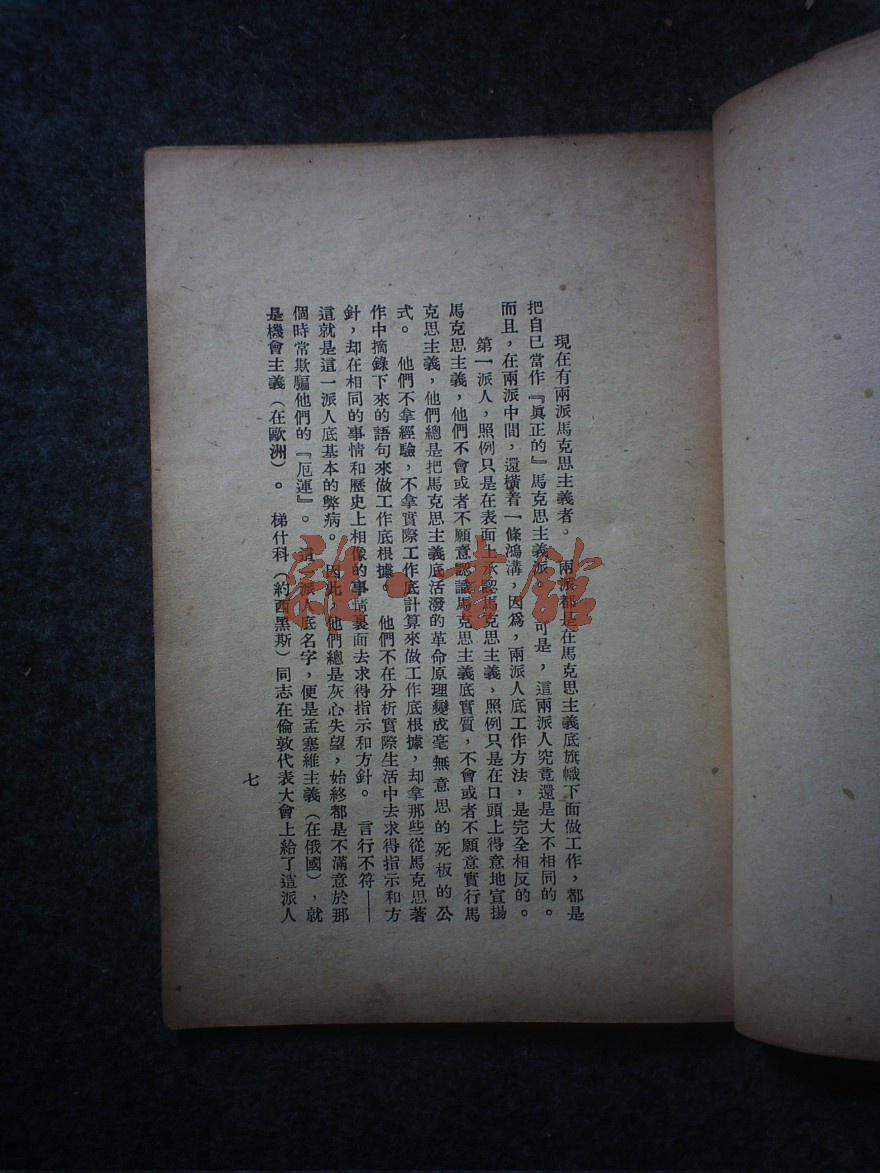 現在有兩派馬克思主義者。 兩派都是在馬克思主義底旗幟下面做工作，都是
把自已當作『眞正的』馬克思主義派。 可是，這兩派人究竟還是大不相同的。
而且，在兩派中間，還橫着一條鴻溝，因爲，兩派人底工作方法，是完全相反的。
第一派人，照例只是在表面上承認馬克思主義，照例只是在口頭上得意地宣揚
馬克思主義，他們不會或者不願意認識馬克思主義底實質，不會或者不願意實行馬
克思主義，他們總是把馬克思主義底活潑的革命原理變成毫無意思的死板的公
式。 他們不拿經驗，不拿實際工作底計算來做工作底根據，却拿那些從馬克思著
作中摘錄下來的語句來做工作底根據。 他們不在分析實際生活中去求得指示和方
針，却在相同的事情和歷史上相像的事情裏面去求得指示和方針。 言行不符——
這就是這一派人底基本的弊病。 因此，他們總是灰心失望，始終都是不滿意於那
個時常欺騙他們的『厄運』。 這一派人底名字，便是孟塞維主義（在俄國），就
是機會主義（在歐洲）。 梯什科（約西黑斯）同志在倫敦代表大會上給了這派人
七
雜·書館